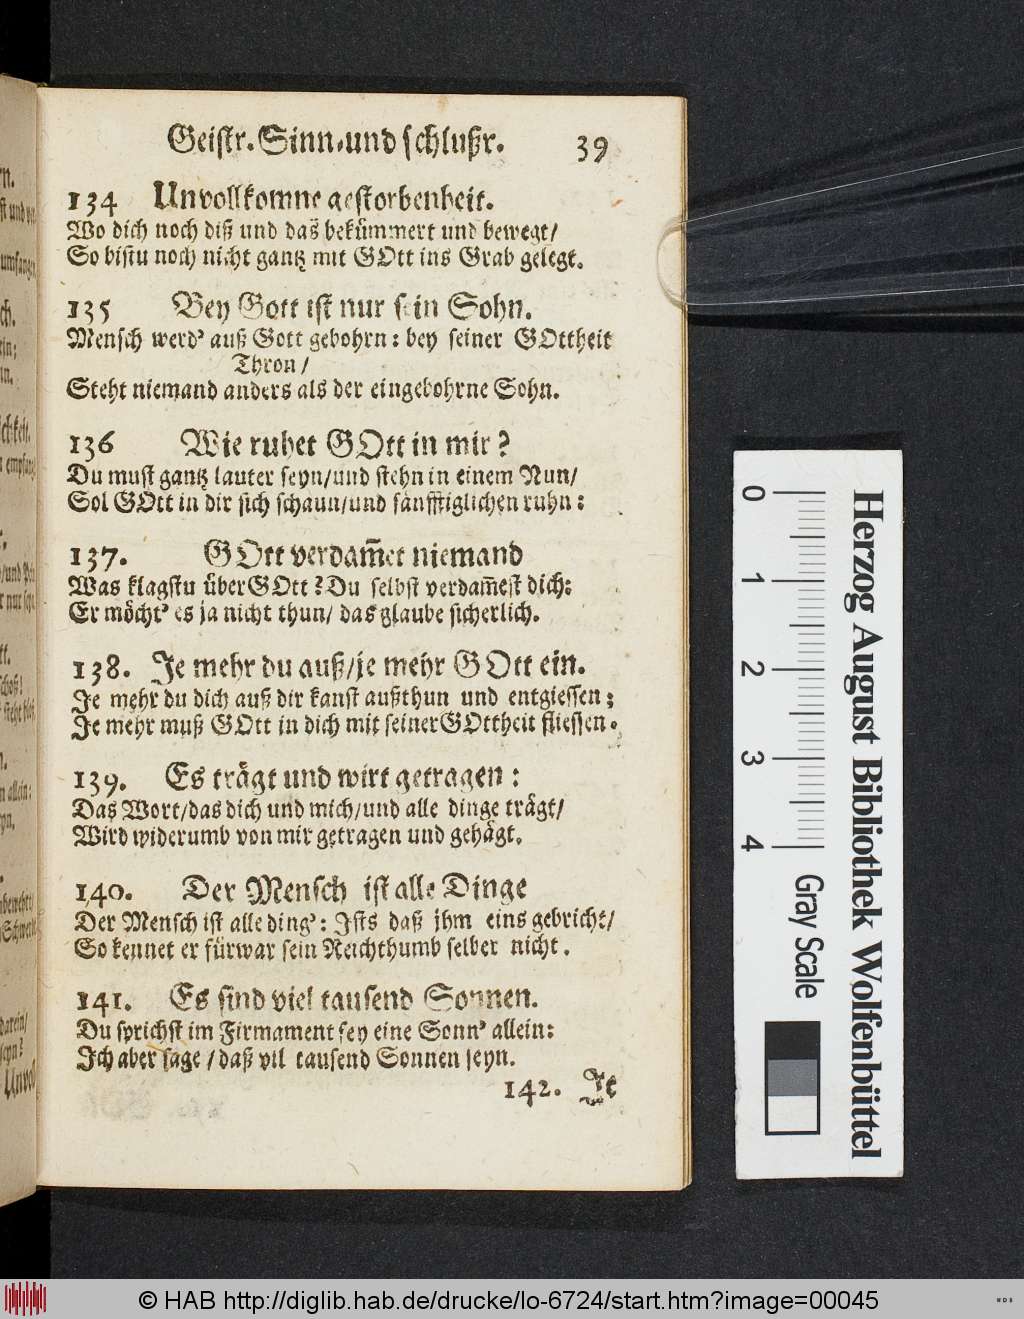 Geistr. Sinn-und schlußr. 39
134 Unvollkomne gestorbenheit.
Wo dich noch diß und das bekümmert und bewegt/
So bistu noch nicht gantz mit GOtt ins Grab gelegt.
135 Bey Gott ist nur sein Sohn.
Mensch werd' auß Gott gebohrn: bey seiner GOttheit
Thron/
Steht niemand anders als der eingebohrne Sohn.
136 Wie ruhet GOtt in mir?
Du must gantz lauter seyn/und stehn in einem Nun/
Sol GOtt in dir sich schaun/und sänfftiglichen ruhn:
137. GOtt verdam̄et niemand
Was klagstu über GOtt? Du selbst verdam̄est dich:
Er möcht' es ja nicht thun/ das glaube sicherlich.
138. Je mehr du auß/je mehr GOtt ein.
Je mehr du dich auß dir kanst außthun und entgiessen;
Je mehr muß GOtt in dich mit seiner GOttheit fliessen.
139. Es trägt und wirt getragen:
Das Wort/das dich und mich/und alle dinge trägt/
Wird widerumb von mir getragen und gehägt.
140. Der Mensch ist alle Dinge
Der Mensch ist alle ding': Ists daß jhm eins gebricht/
So kennet er fürwar sein Reichthumb selber nicht.
141. Es sind viel tausend Sonnen.
Du sprichst im Firmament sey eine Sonn' allein:
Ich aber sage/daß vil tausend Sonnen seyn.
142. Je
Herzog August Bibliothek Wolfenbüttel
0 1 2 3 4 Gray Scale
© HAB http://diglib.hab.de/drucke/lo-6724/start.htm?image=00045